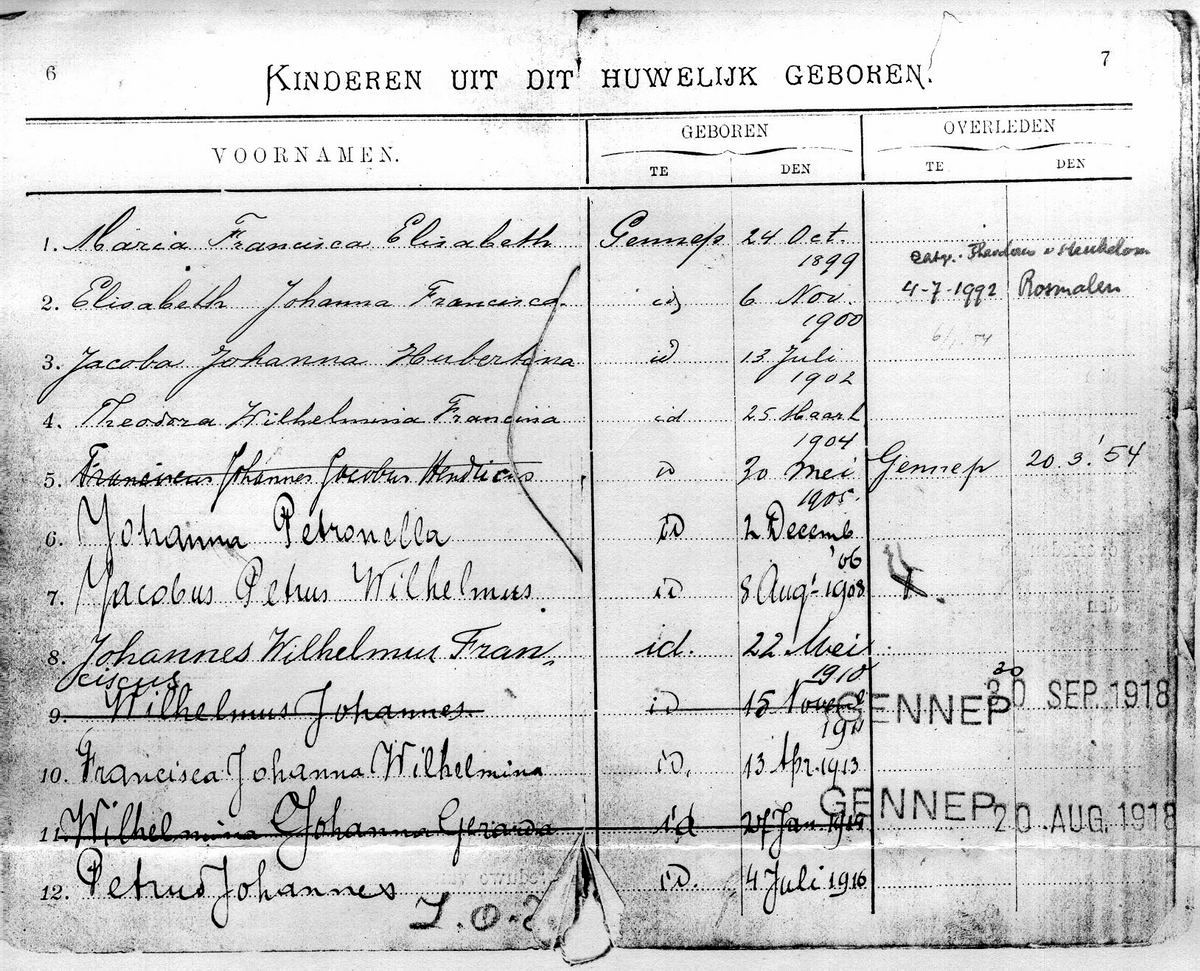 6
7
KINDEREN UIT DIT HUWELIJK GEBOREN.
VOORNAMEN.
GEBOREN
OVERLEDEN
TE DEN TE DEN
1. Maria Francisca Elisabeth Gennep 24 Oct.
1899
2. Elisabeth Johanna Francisca id 6 Nov. 4-7-1992 Rosmalen
1900
3. Jacoba Johanna Hubertina id 13 Juli
1902
4. Theodora Wilhelmina Francina id 25 Maart
1904
5. Franciscus Johannes Jacobus Hendricus id 30 Mei Gennep 20.3.'54
1905.
6. Johanna Petronella id 2 Decemb
'06
7. Jacobus Petrus Wilhelmus. id 8 Aug. 1908
8. Johannes Wilhelmus Fran- id. 22 Mei
ciscus 1910
9. Wilhelmus Johannes. id 15 Novemb GENNEP 20 SEP. 1918
1911
10. Francisca Johanna Wilhelmina id. 13 Apr. 1913
11. Wilhelmina Johanna Gerarda id 27 Jan. GENNEP 20 AUG. 1918
12. Petrus Johannes id. 4 Juli 1916